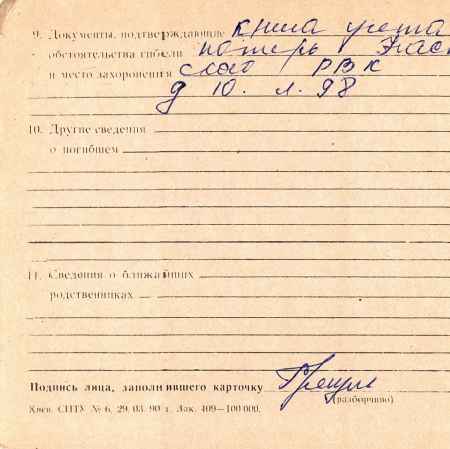 9. Документы, подтверждающие книга учета
обстоятельства гибели потерь
и место захоронения ского РВК
д 10. л. 98
10. Другие сведения
о погибшем
11. Сведения о ближайших
родственниках
Подпись лица, заполнившего карточку
(разборчиво)
Киев. СПТУ № 6, 29. 03. 90 г. Зак. 409—100 000.